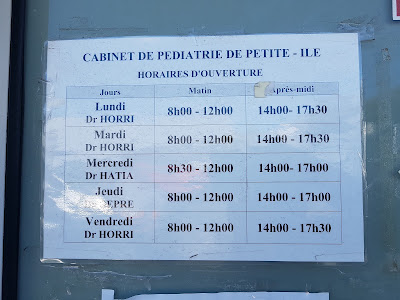 CABINET DE PEDIATRIE DE PETITE - ILE
HORAIRES D'OUVERTURE
Jours Matin Après-midi
Lundi
Dr HORRI 8h00 - 12h00 14h00- 17h30
Mardi
Dr HORRI 8h00 - 12h00 14h00 - 17h30
Mercredi
Dr HATIA 8h30 - 12h00 14h00- 17h00
Jeudi
8h00 - 12h00 14h00 - 17h00
Vendredi
Dr HORRI 8h00 - 12h00 14h00 - 17h30